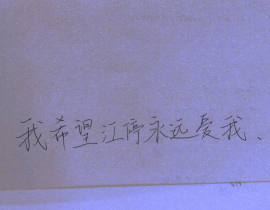 我希望江停永远爱我、